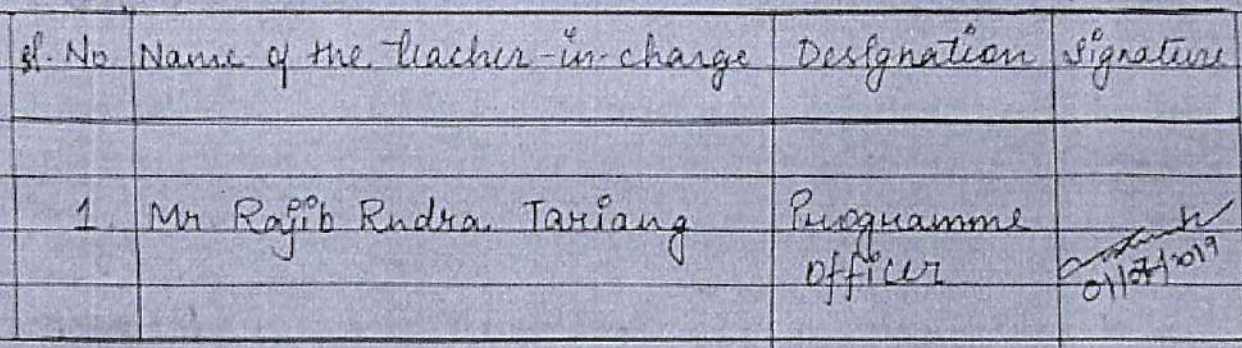 Sl. No Name of the teacher-in-charge Designation Signature
1. Mr Rajib Rudra Tariang Programme
officer
01/07/2019